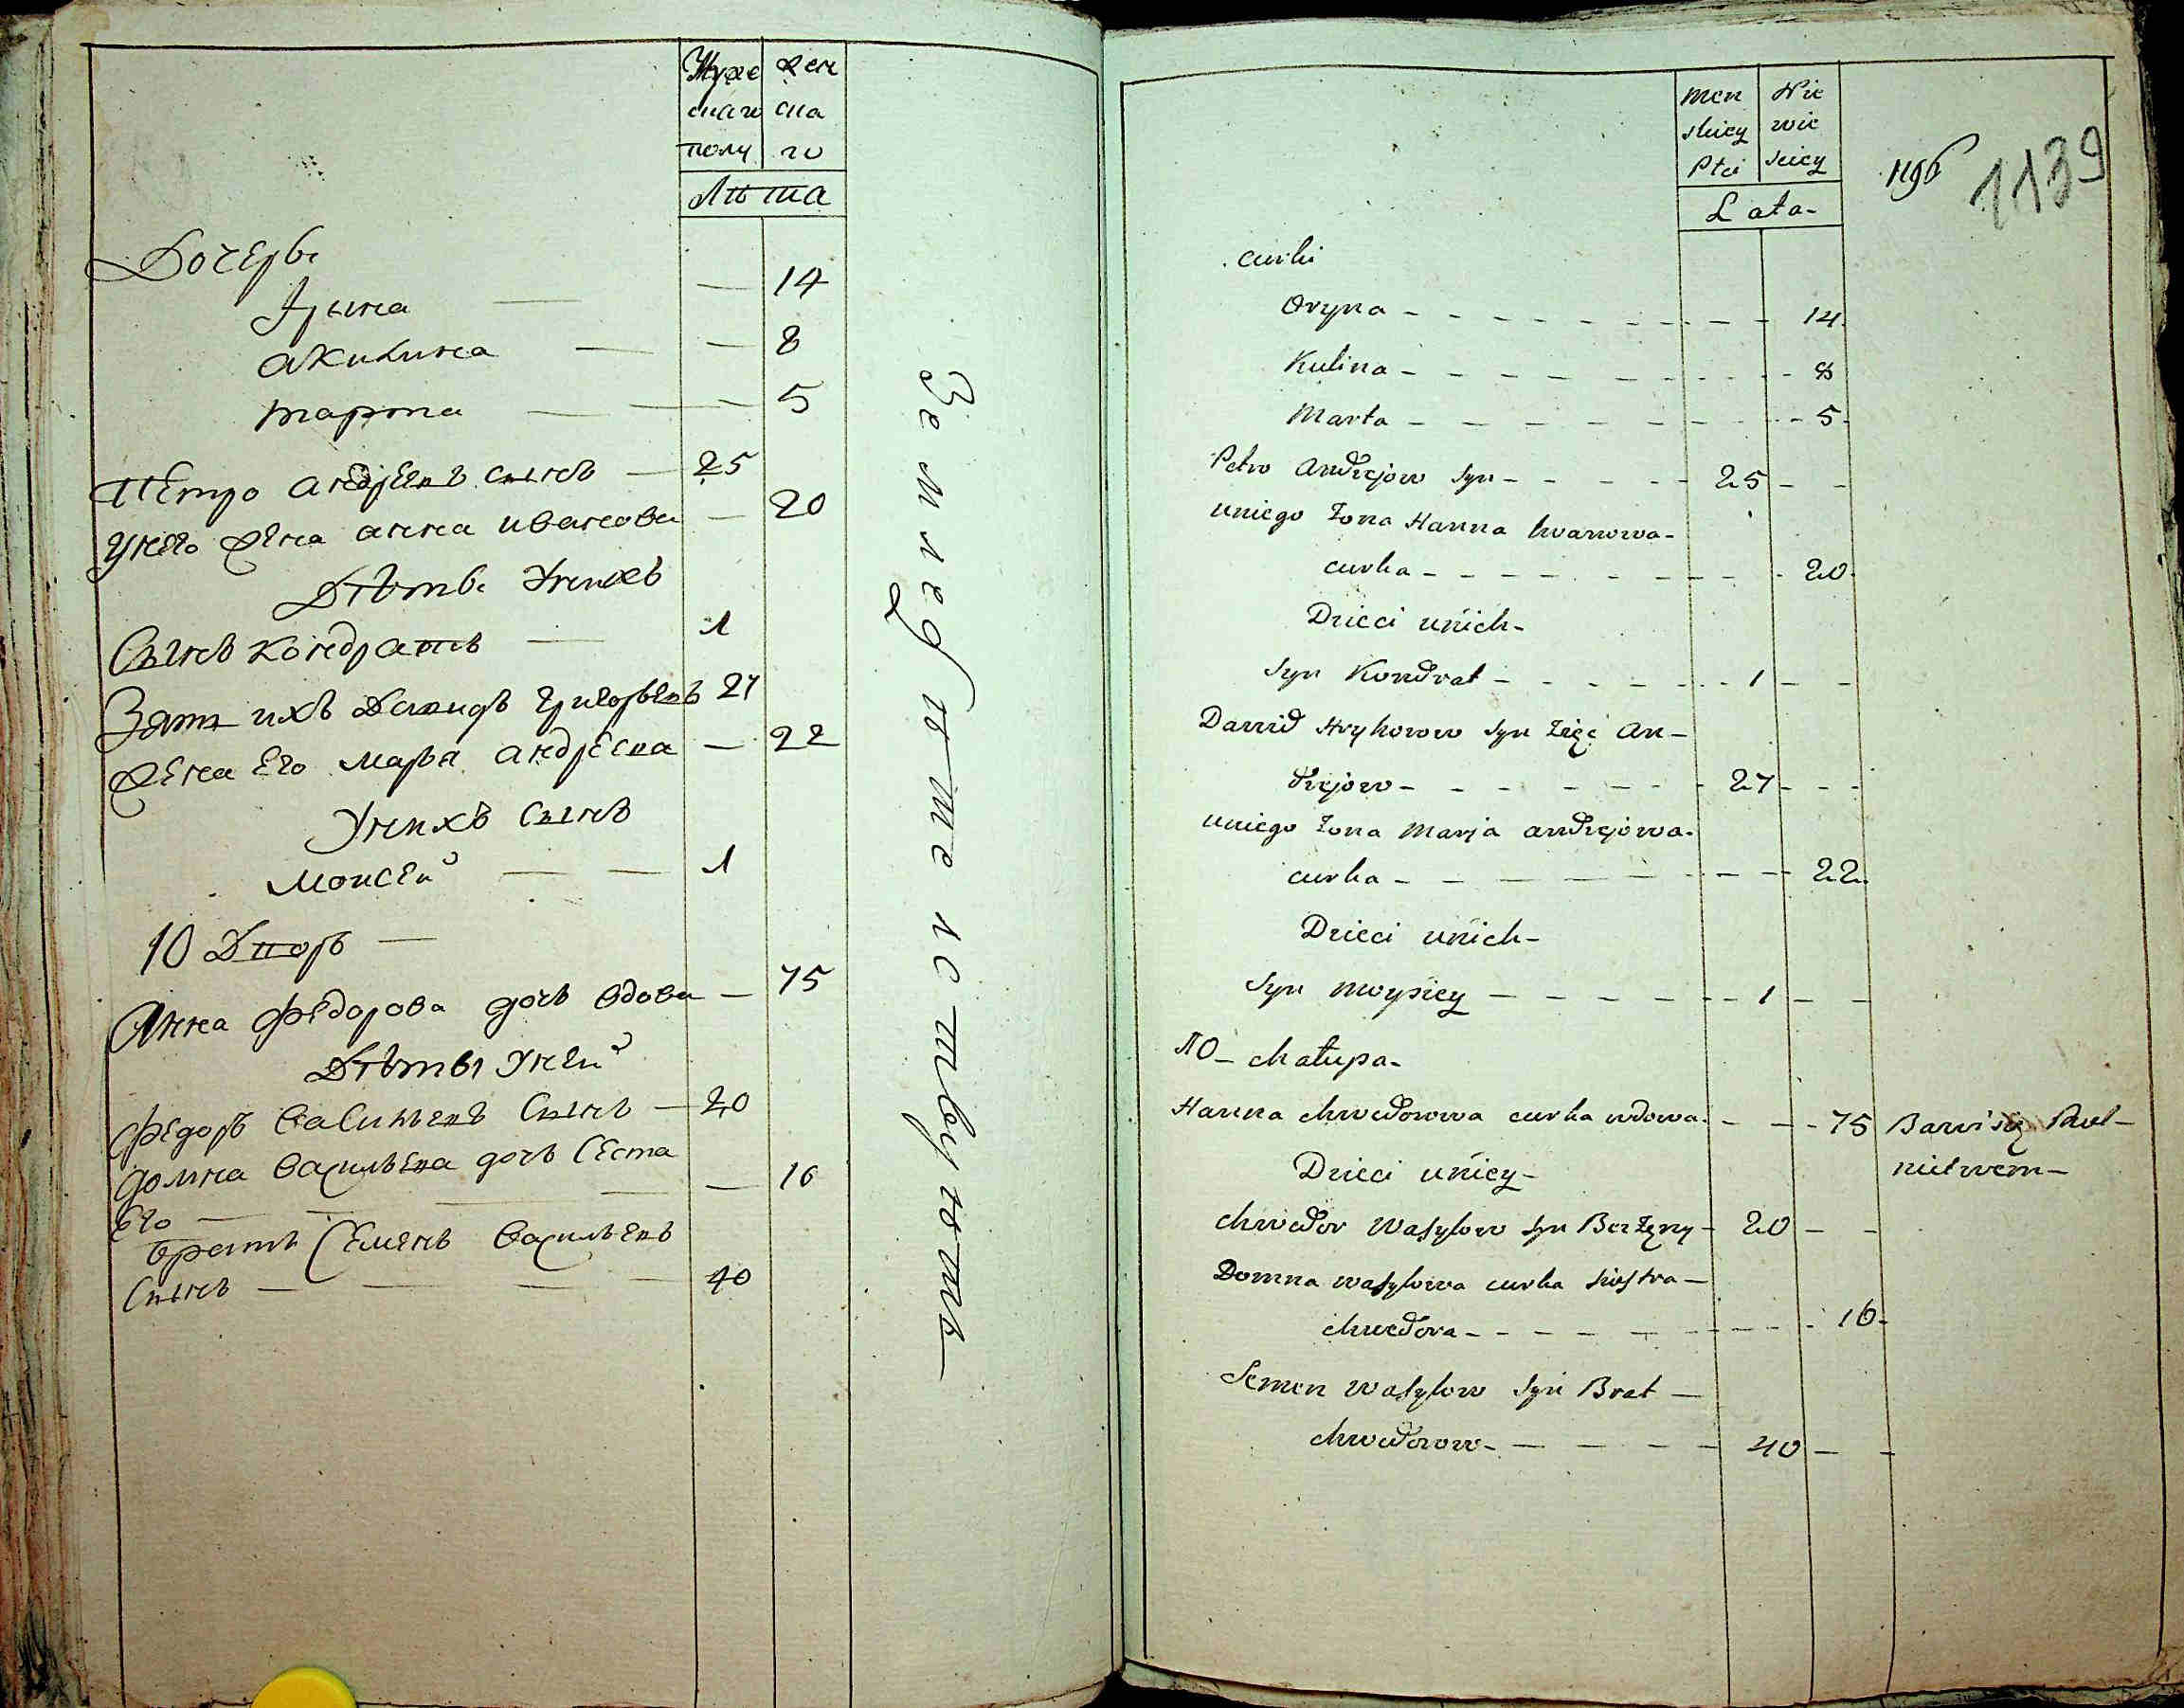 Муже жен
скаго ска
полу го
Лѣта
Дочерѣ
Ирина — — 14
Акилина — — 8
Марта — — 5
Петро Андреевъ сынъ — 25
Унего жена Анна Иванова — 20
Дѣтѣ Унихъ
Сынъ Кондратъ — 1
Зят ихъ Давидъ Григорьевъ 27
Жена Его Марья Андреева — 22
Унихъ Сынъ
Моисей — — 1
10 Дворъ —
Анна Федорова дочь вдова — 75
Дѣты Уней
Федоръ Васильевъ Сынъ — 20
Домна Васильева дочь Сестра
Его — — — — 16
Братъ Семенъ Васильевъ
Сынъ — — — 40
Земледѣлствуютъ
Men Nie
skiey wie
Płci skiey
Lata-
1196
1139
curki
Oryna - - - - - - - - - 14
Kulina - - - - - - - - - 8
Marta - - - - - - - - - 5
Petro Andrejow Syn - - - - - 25 - -
uniego żona Hanna Iwanowa-
curka - - - - - - - - 20
Dzieci unich-
Syn Kondrat - - - - - 1 - -
Dawid Hryhorow Syn zięć An-
drejow - - - - - - 27 - - -
uniego żona Marja Andrejowa-
curka - - - - - - - - 22
Dzieci unich-
Syn Moysiey - - - - - - 1 - -
10- chałupa-
Hanna Chwedorowa curka wdowa - - - 75 Bawi się Rol-
Dzieci uniey- nictwem-
Chwedor Wasylow Syn Bezżęny - 20 - -
Domna Wasylowa curka siostra -
Chwedora - - - - - - - - - 16
Semen Wasylow Syn Brat -
Chwedorow - - - - - 40 - -